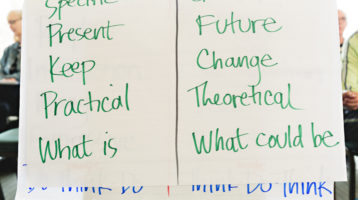 Specific
Present Future
Keep Change
Practical Theoretical
What is What could be
Do Think Do Think Do Think